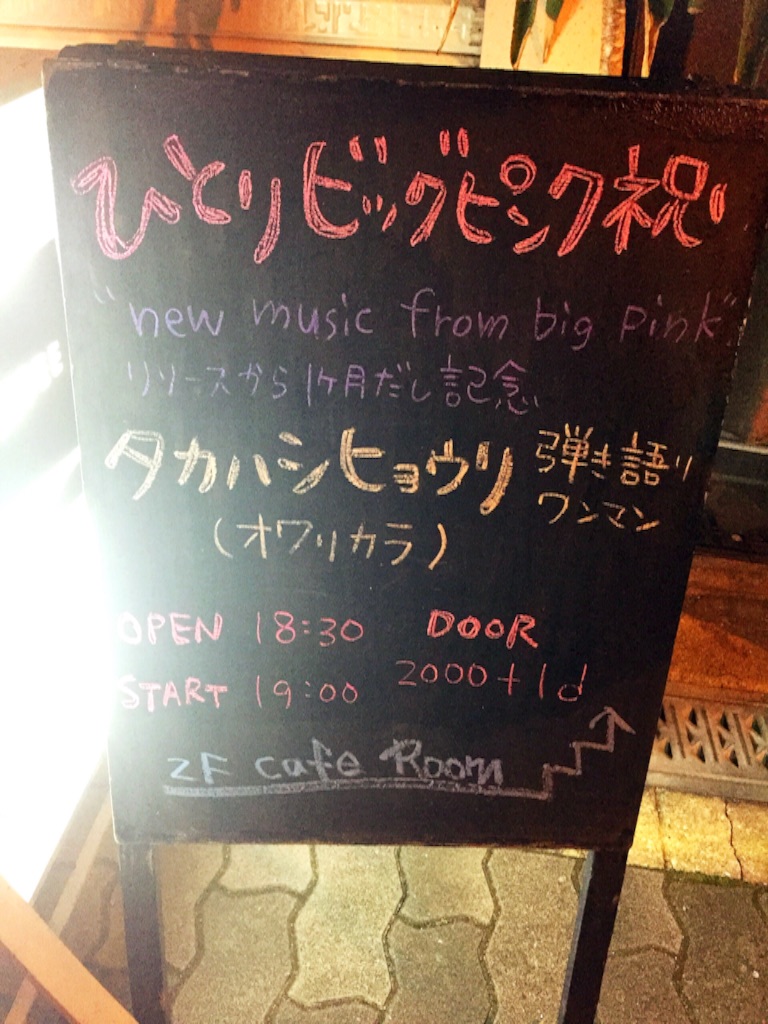 ひとりビッグピンク祝い
"new music from big pink"
リリースから1ヶ月だし記念
タカハシヒョウリ 弾き語り
ワンマン
(オワリカラ)
OPEN 18:30 DOOR
START 19:00 2000+1d
2F cafe Room